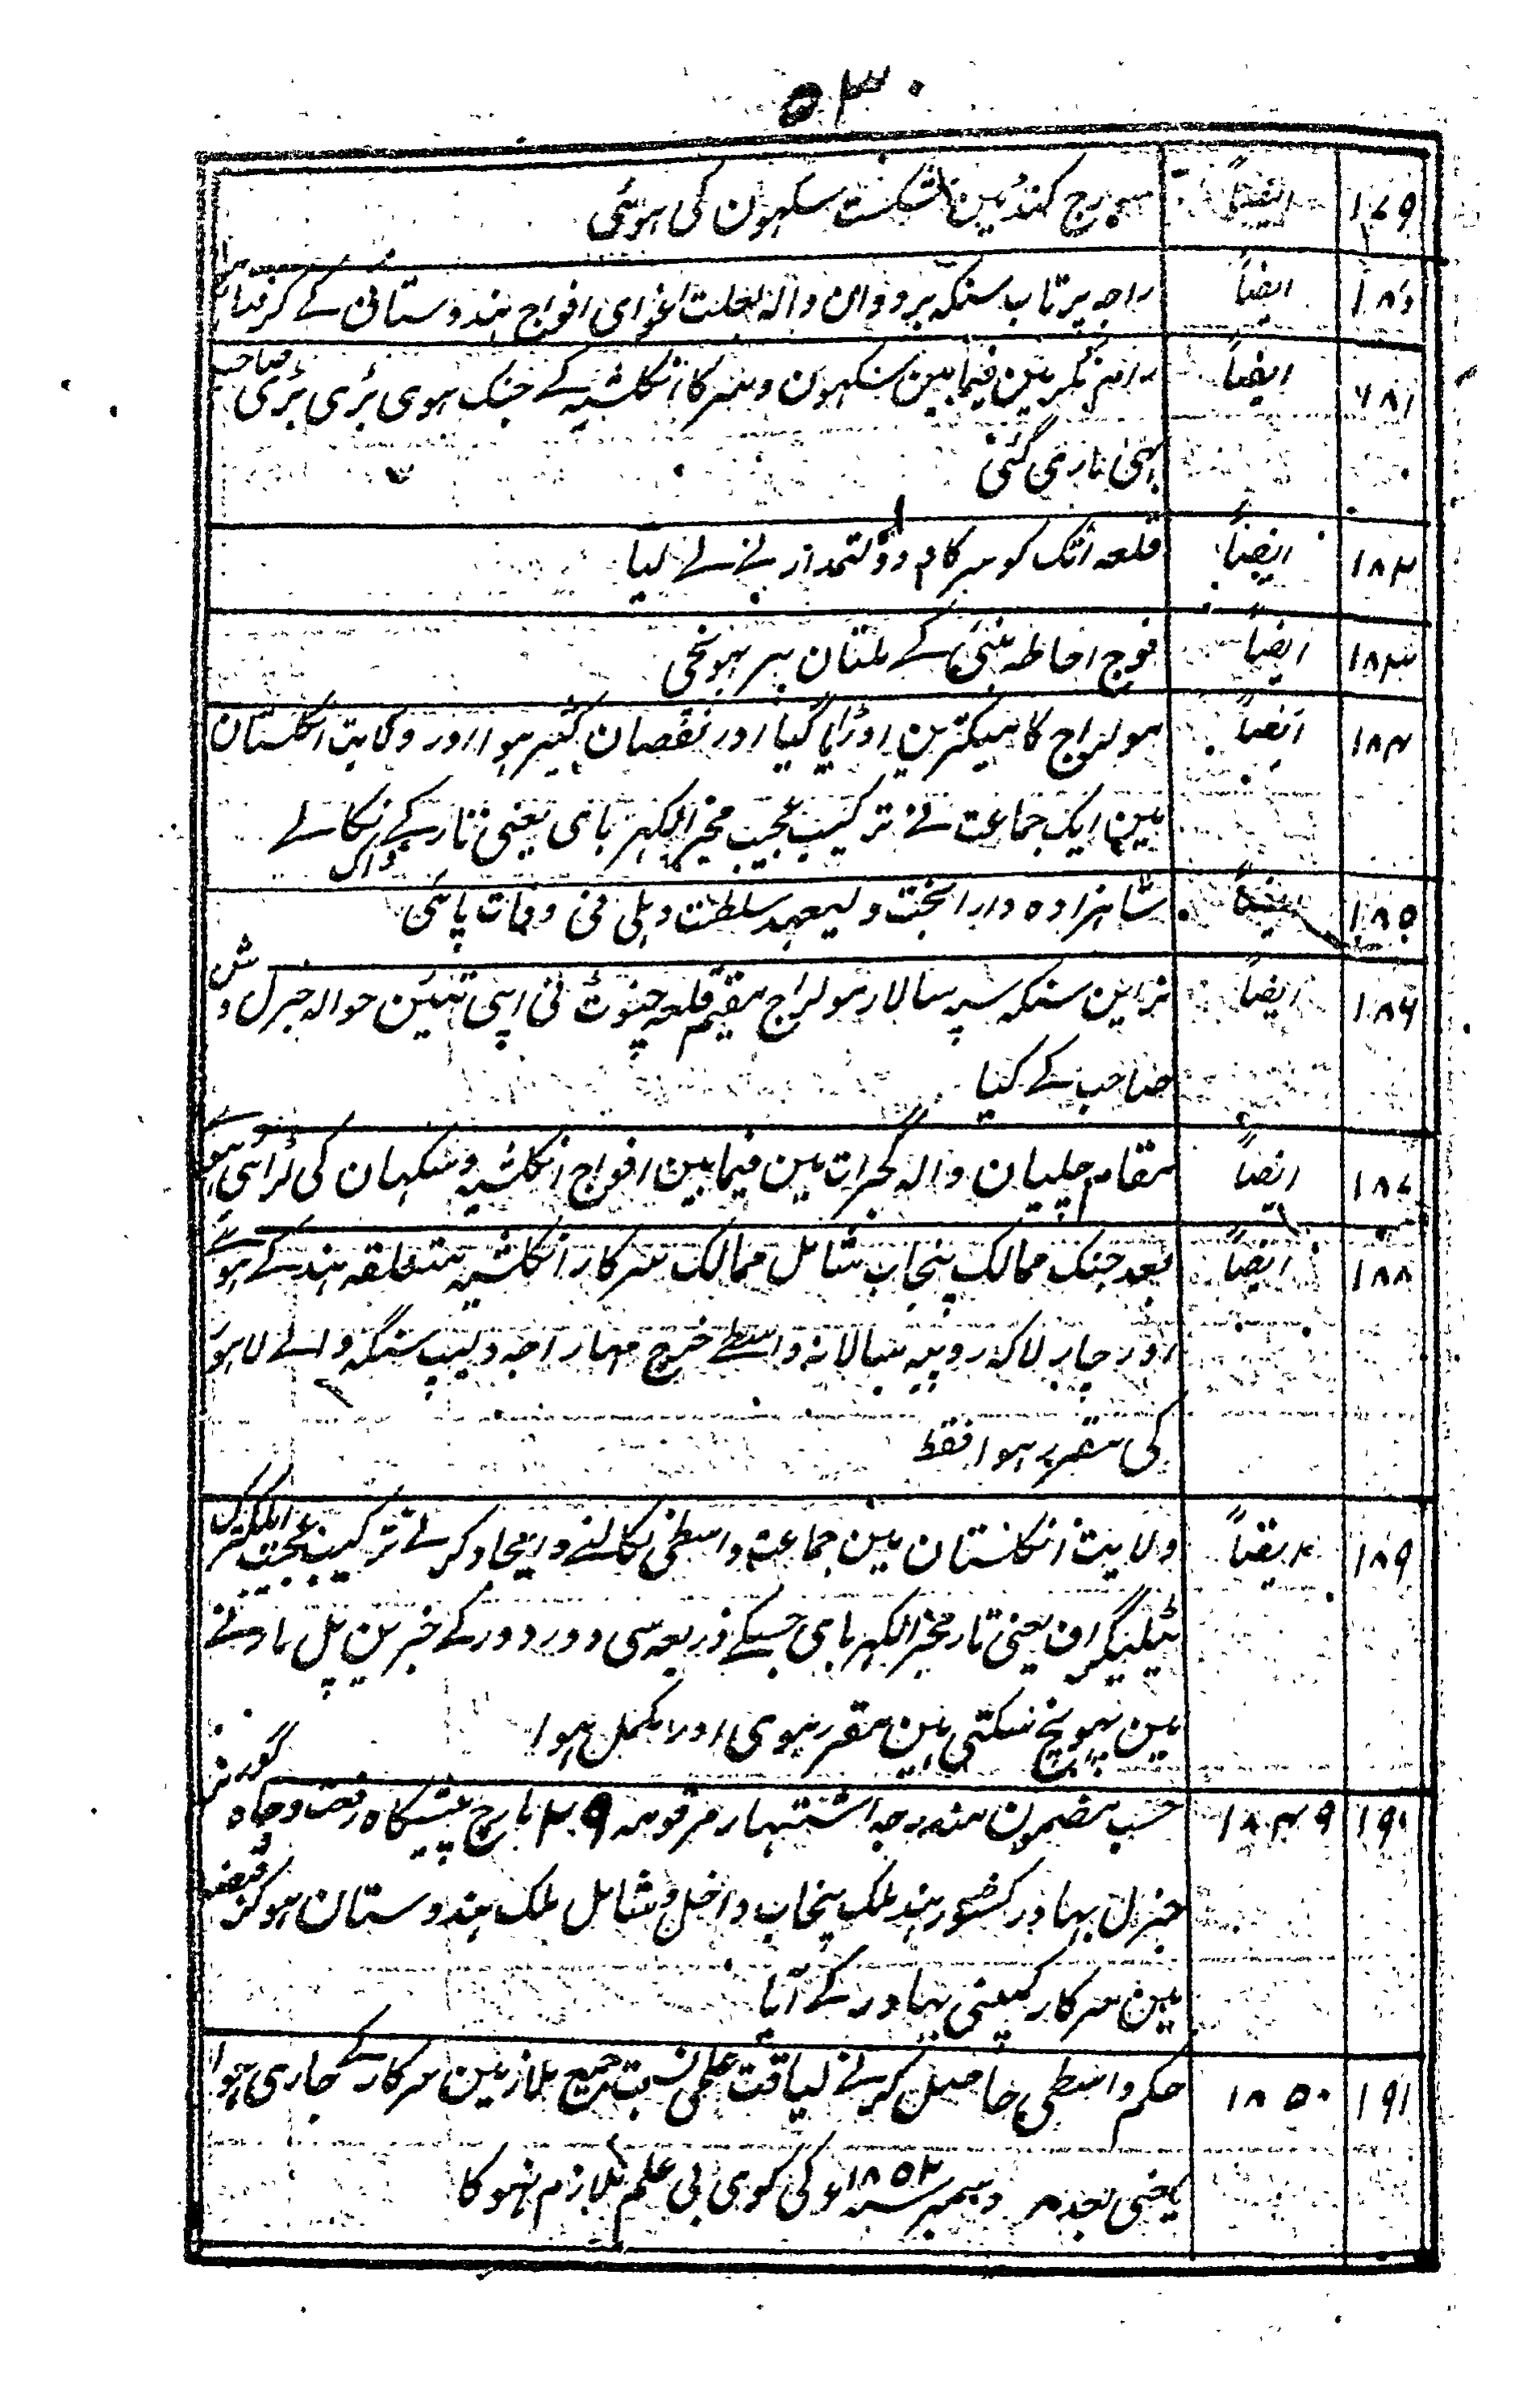 ۵۳۰
۱۷۹ ایضاً سورج کنڈ مین شکست سکہون کی ہوئی
۱۸۰ ایضاً راجہ پرتاب سنکہ بردوان والہ بعلت اغوای افواج ہندوستانی کے کرفتار ہوا
۱۸۱ ایضاً رام نگر مین فیمابین سنکہون و سرکار انگلشیہ کے جنک ہوی بڑی بڑی صاحب
بہی ماری گئی
۱۸۲ ایضاً قلعہ اٹک کو سرکار دولتمدار نے لے لیا
۱۸۳ ایضاً فوج احاطہ بنبئی کے ملتان پر پہونچی
۱۸۴ ایضاً مولراج کا میکزین اوڑایا گیا اور نقصان کثیر ہوا اور ولایت انکلستان
مین ایک جماعت نے ترکیب عجیب مخبر الکہربای یعنی تار کے ڈاک نکالے
۱۸۵ ایضاً شاہزادہ دارابخت ولیعہد سلطنت دہلی نی وفات پائی
۱۸۶ ایضاً نراین سنکہ سپہ سالار مولراج مقیم قلعہ چنوٹ نی اپنی تئین حوالہ جنرل وش
صاحب کے کیا
۱۸۷ ایضاً مقام چلیان والہ گجرات مین فیمابین افواج انکلشیہ و سکہان کی لڑائی ہوئے
۱۸۸ ایضاً بعد جنک ممالک پنجاب شامل ممالک سرکار انکلشیہ متعلقہ ہند کے ہوئے
اور چار لاکہ روپیہ سالانہ واسطے خرچ مہاراجہ دلیپ سنگہ والے لاہور
کی مقرر ہوا فقط
۱۸۹ ایضاً ولایت انکلستان مین جماعت واسطی نکالنے و ایجاد کرنے ترکیب عجیب الکترک
ٹیلیگراف یعنی تار مخبر الکہربای جسکے ذریعہ سی دور دور کے خبرین پل مارنے
مین پہونچ سکتی ہین مقرر ہوی اور مکمل ہوا
۱۹۰ ۱۸۴۹ حسب مضمون مندرجہ اشتہار مرقومہ ۲۹ مارچ پیشکاہ رفعت و جاہ گورنر
جنرل بہادر کشور ہند ملک پنجاب داخل و شامل ملک ہندوستان ہوکر قبضہ
مین سرکار کمپنی بہادر کے آیا
۱۹۱ ۱۸۵۰ حکم واسطی حاصل کرنے لیاقت علمی نسبت جمیع ملازمین سرکار کے جاری ہوا
یعنی بعد دسمبر سنہ ۱۸۵۲ء کی کوی بی علم ملازم نہوکا